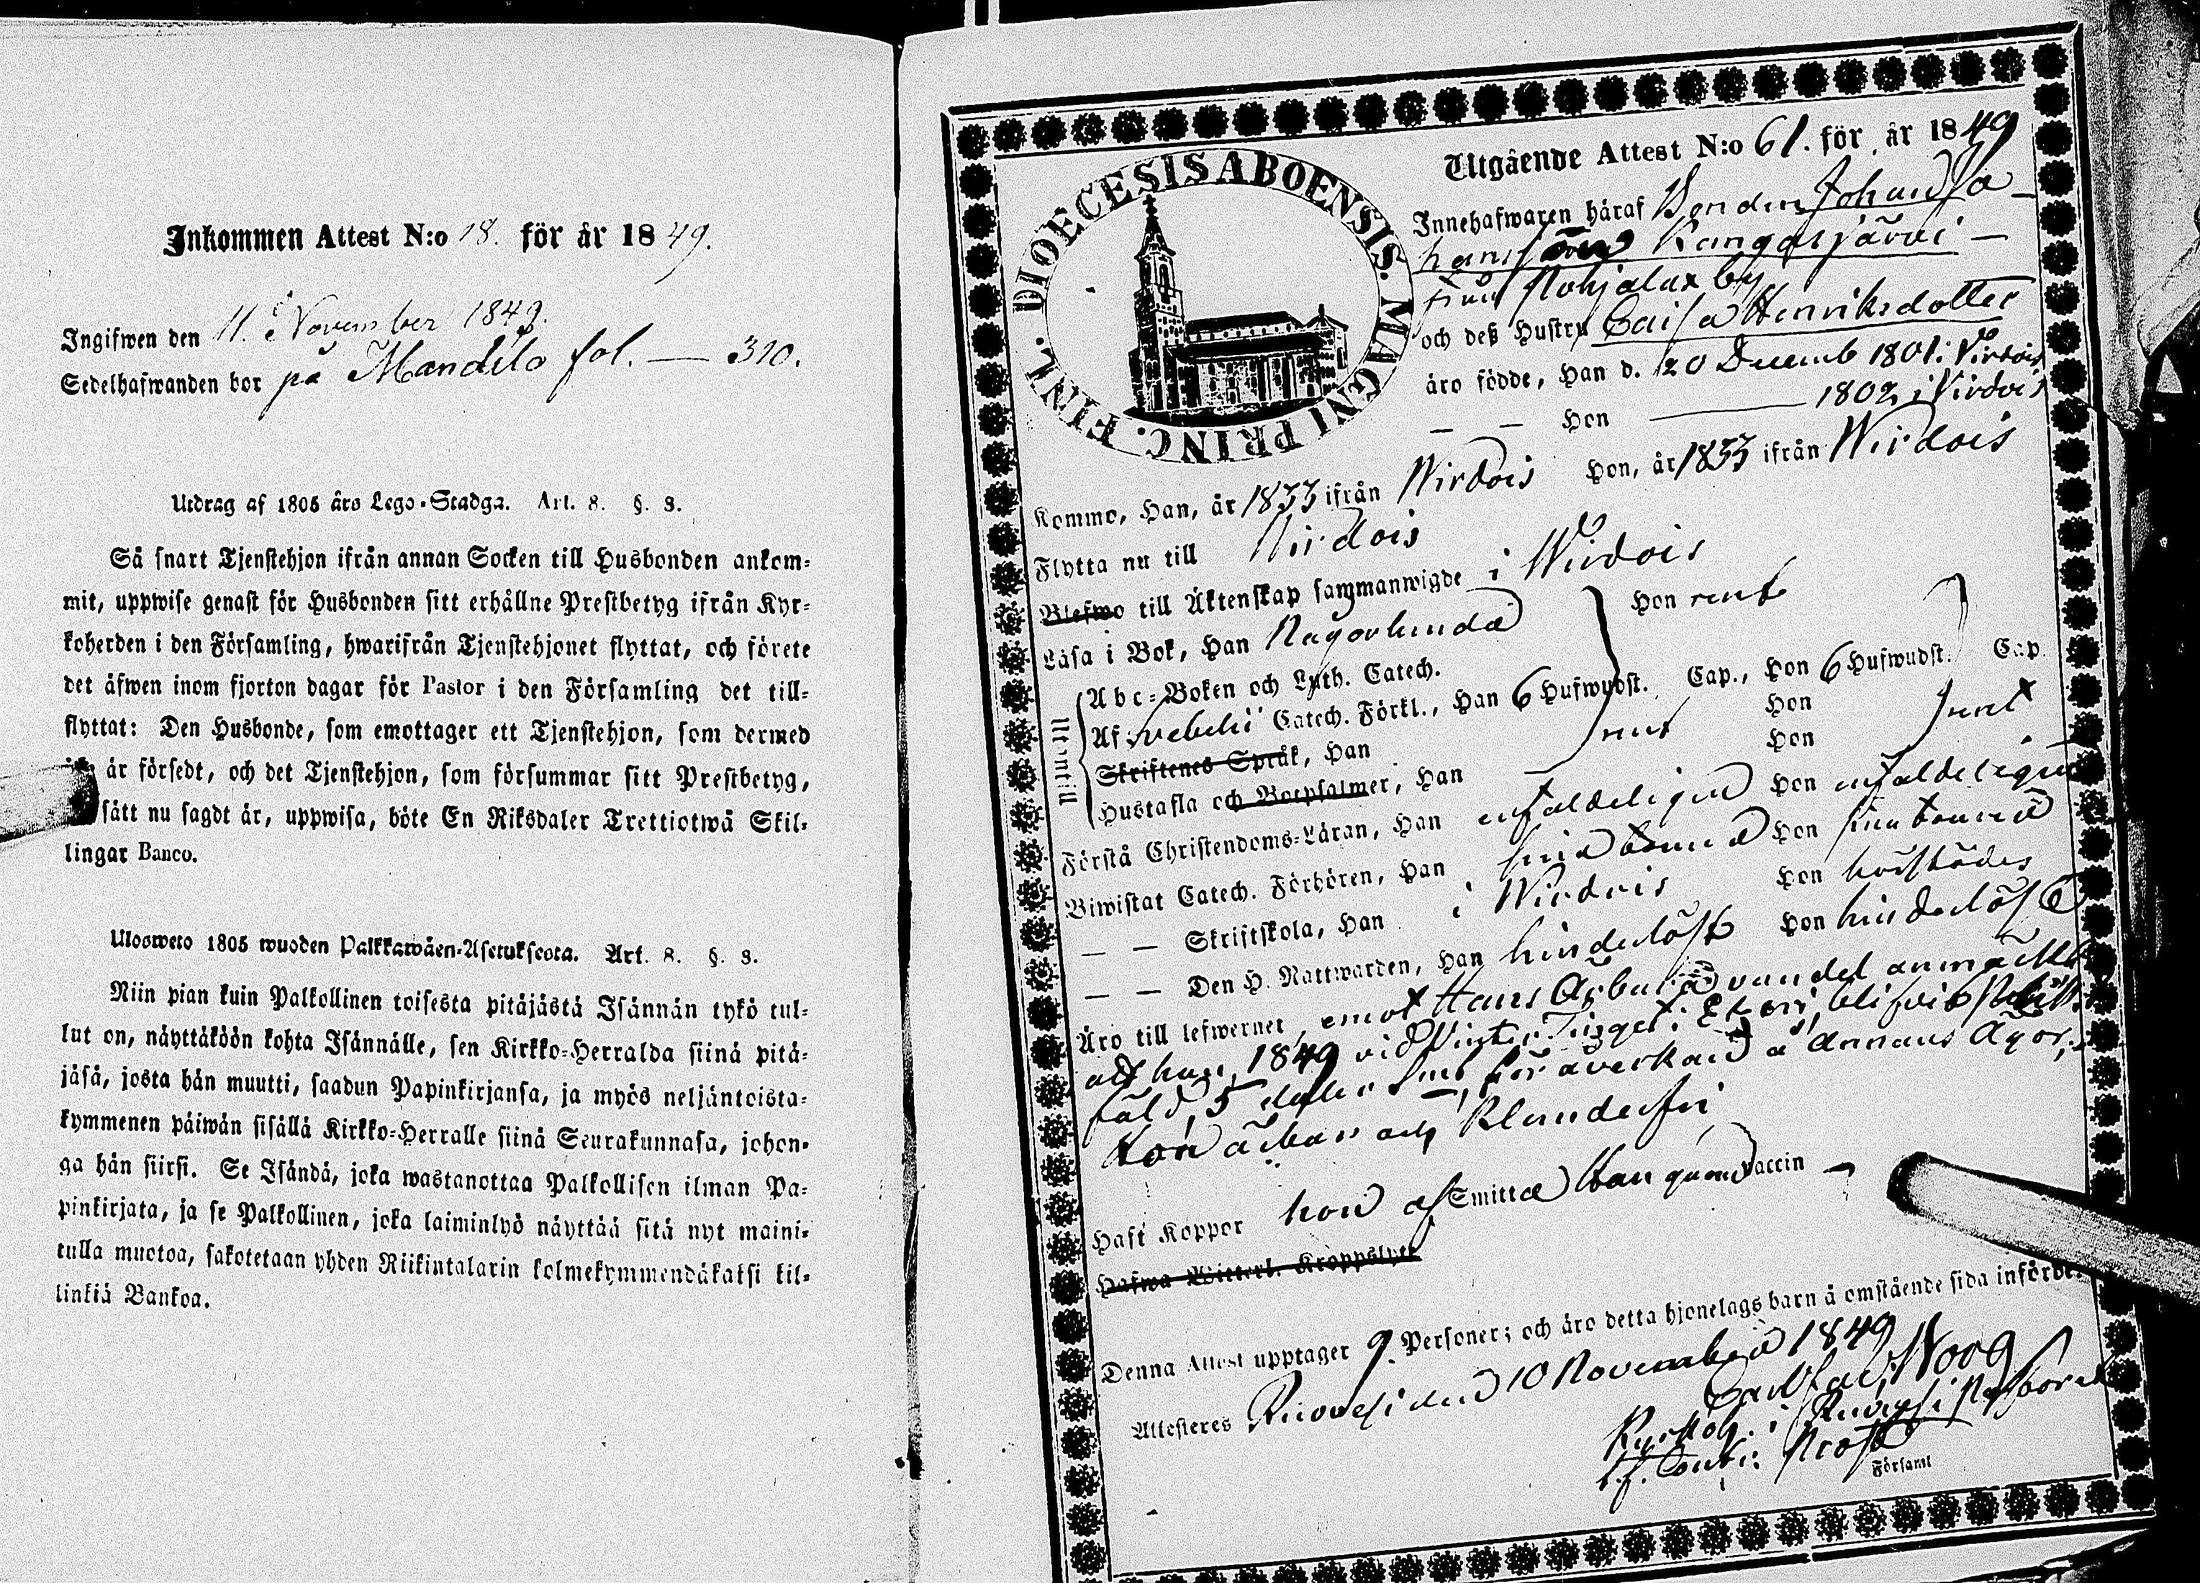 Inkommen Attest N:o 18. för år 1849.
Ingifwen den 11. November 1849.
Sedelhafwanden bor på Mandila fol. — 310.
Utdrag af 1805 års Lego-Stadga. Art. 8. §. 3.
Så snart Tjenstehjon ifrån annan Socken till Husbonden ankom-
mit, uppwise genast för Husbonden sitt erhållne Prestbetyg ifrån Kyr-
koherden i den Församling, hwarifrån Tjenstehjonet flyttat, och förete
det äfwen inom fjorton dagar för Pastor i den Församling det till-
flyttat: Den Husbonde, som emottager ett Tjenstehjon, som dermed
är försedt, och det Tjenstehjon, som försummar sitt Prestbetyg,
sätt nu sagdt är, uppwisa, böte En Riksdaler Trettiotwå Skil-
lingar Banco.
Ulosweto 1805 wuoden Palkkawäen-Asetuksesta. Art. 8. §. 3.
Niin pian kuin Palkollinen toisesta pitäjästä Isännän tykö tul-
lut on, näyttäköön kohta Isännälle, sen Kirkko-Herralda siinä pitä-
jäsä, josta hän muutti, saadun Papinkirjansa, ja myös neljäntoista-
kymmenen päiwän sisällä Kirkko-Herralle siinä Seurakunnasa, johon-
ga hän siirsi. Se Isändä, joka wastanottaa Palkollisen ilman Pa-
pinkirjata, ja se Palkollinen, joka laiminlyö näyttää sitä nyt maini-
tulla muotoa, sakotetaan yhden Riikintalarin kolmekymmendäkaksi kil-
linkiä Bankoa.
DIOECESIS ABOENSIS. MAGNI PRINC. FINL.
Utgående Attest N:o 61. för år 1849
Innehafwaren häraf Bonden Johan
Kangasjärvi —
från Pohjalax by
och deß Hustru Caisa Henriksdotter
äro födde, Han d. 20 Decemb 1801 i Virdois
— — Hon — 1802 i Virdois
Kommo, Han, år 1833 ifrån Wirdois Hon, år 1833 ifrån Wirdois
Flytta nu till Virdois
Blefwo till Äktenskap sammanwigde i Wirdois
Läsa i Bok, Han Någorlunda Hon rent
Utantill
Abc-Boken och Luth. Catech.
Af Svebelii Catech. Förkl., Han 6 Hufwudst. Cap., Hon 6 Hufwudst. Cap.
Skriftenes Språk, Han Hon
Hustafla och Botpsalmer, Han rent Hon rent
Förstå Christendoms-Läran, Han enfaldeligen Hon enfaldeligen
Biwistat Catech. Förhören, Han Hon
— — Skriftskola, Han i Wirdois Hon
— — Den H. Nattwarden, Han hinderlöst Hon hinderlöst
Äro till lefwernet, emot Hans vandel anmärkt
att han 1849 vid Vinter Tinget i
för åverkan å annans ägor;
Hon ärbar och klanderfri
Haft Koppor hon af Smitta Han genom Vaccin —
Hafwa Witterl. Kroppslyte
Denna Attest upptager 9 Personer; och äro detta hjonelags barn å omstående sida införde.
Attesteras Ruovesi den 10 November 1849
Kyrkoh. i Ruovesi
Församl